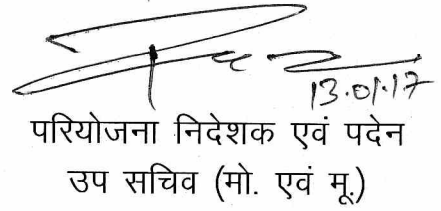 13.01.17
परियोजना निदेशक एवं पदेन
उप सचिव (मो. एवं मू.)